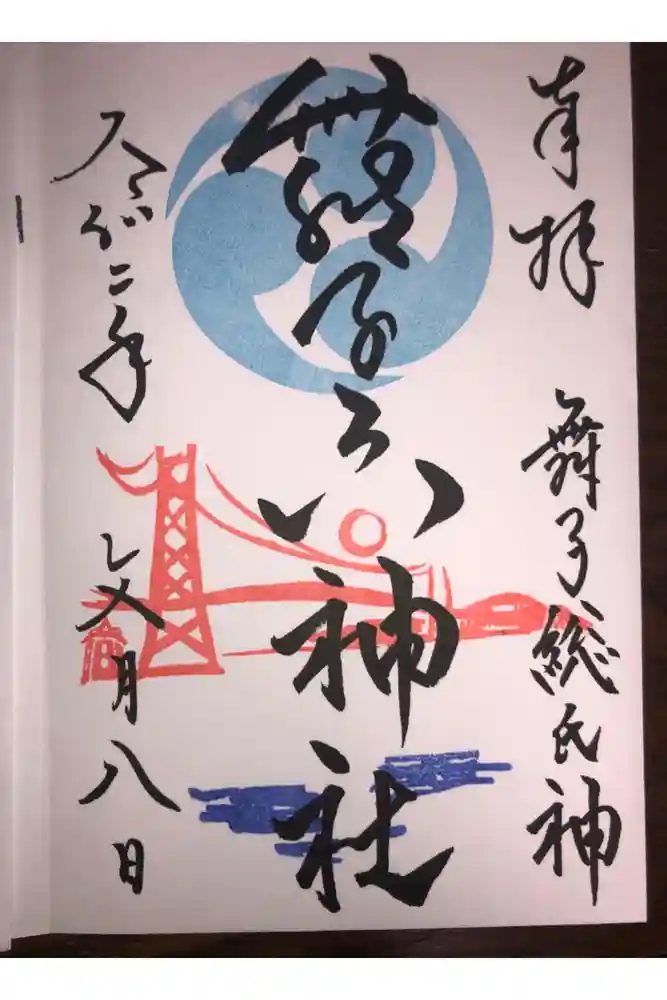 奉拝
舞子総氏神
舞子六神社
令和二年
文月八日